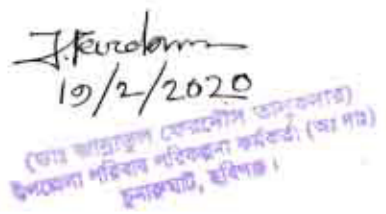 J.Ferdous
19/2/2020
(মোঃ জান্নাতুল ফেরদৌস তালুকদার)
উপজেলা পরিবার পরিকল্পনা কর্মকর্তা (অঃ দাঃ)
চুনারুঘাট, হবিগঞ্জ।